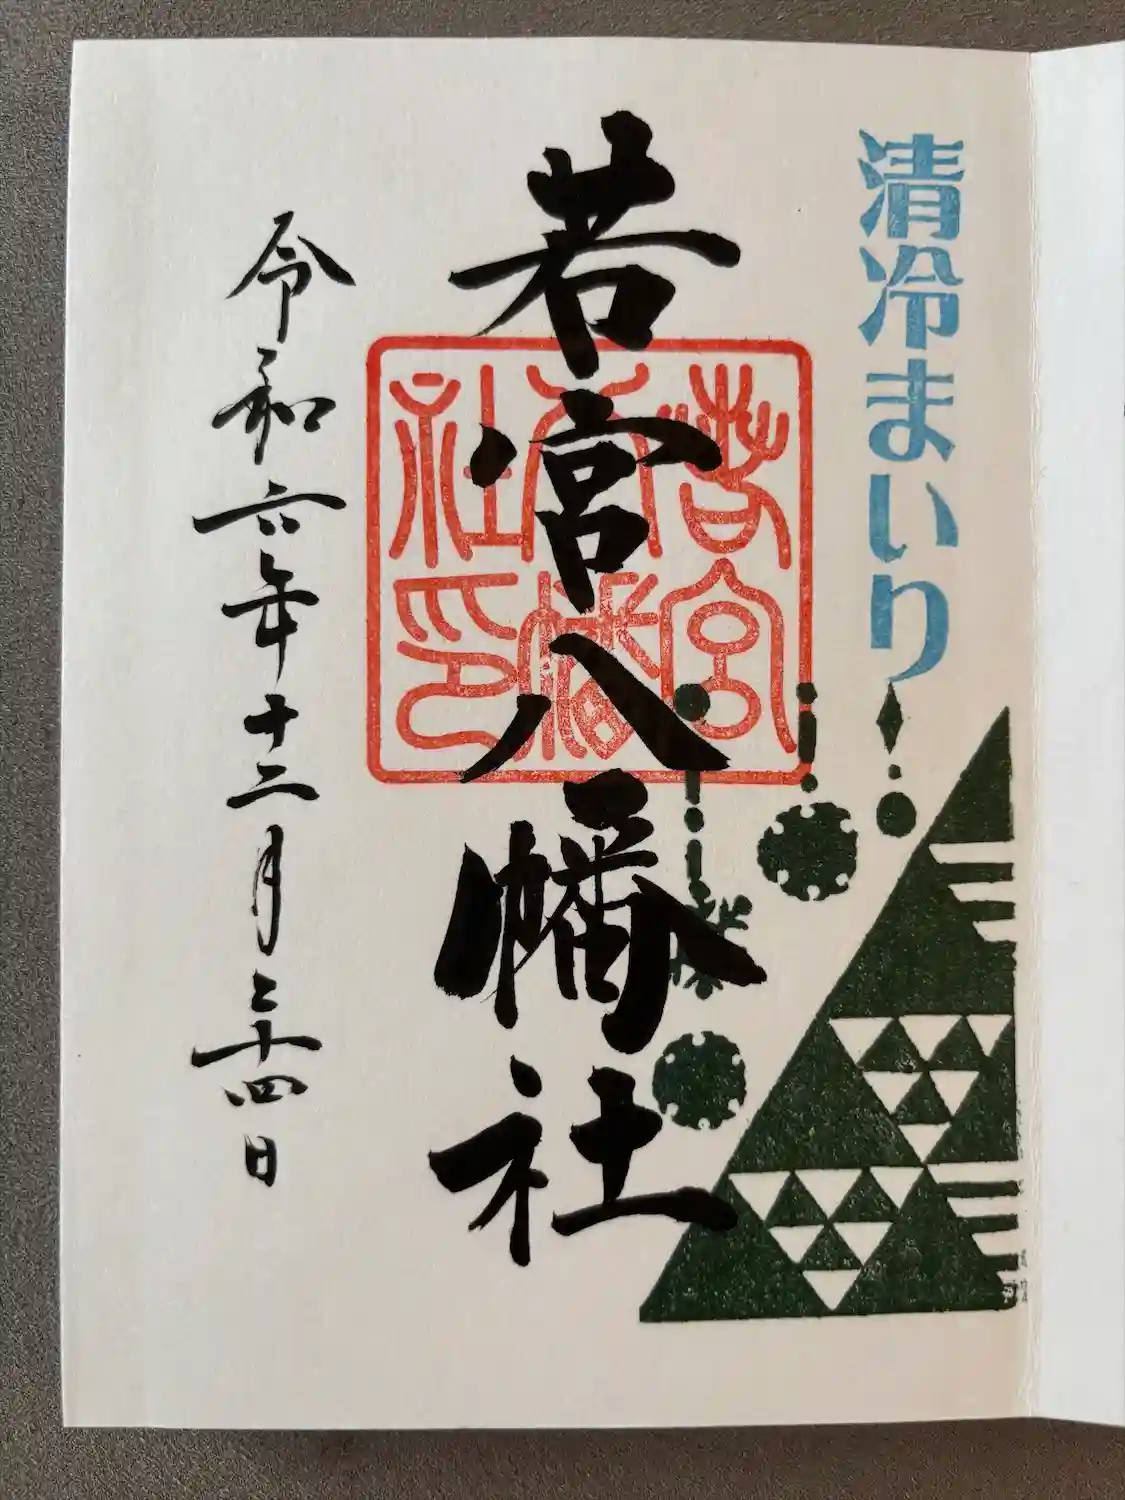 清冷まいり
若宮八幡社
若宮
八幡
社印
令和六年十二月二十四日